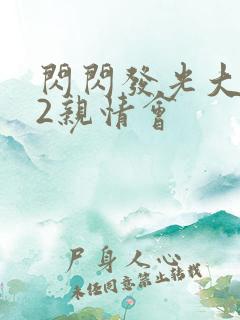 閃閃發光大
2親情會
尸身人心
未经同意禁止转载